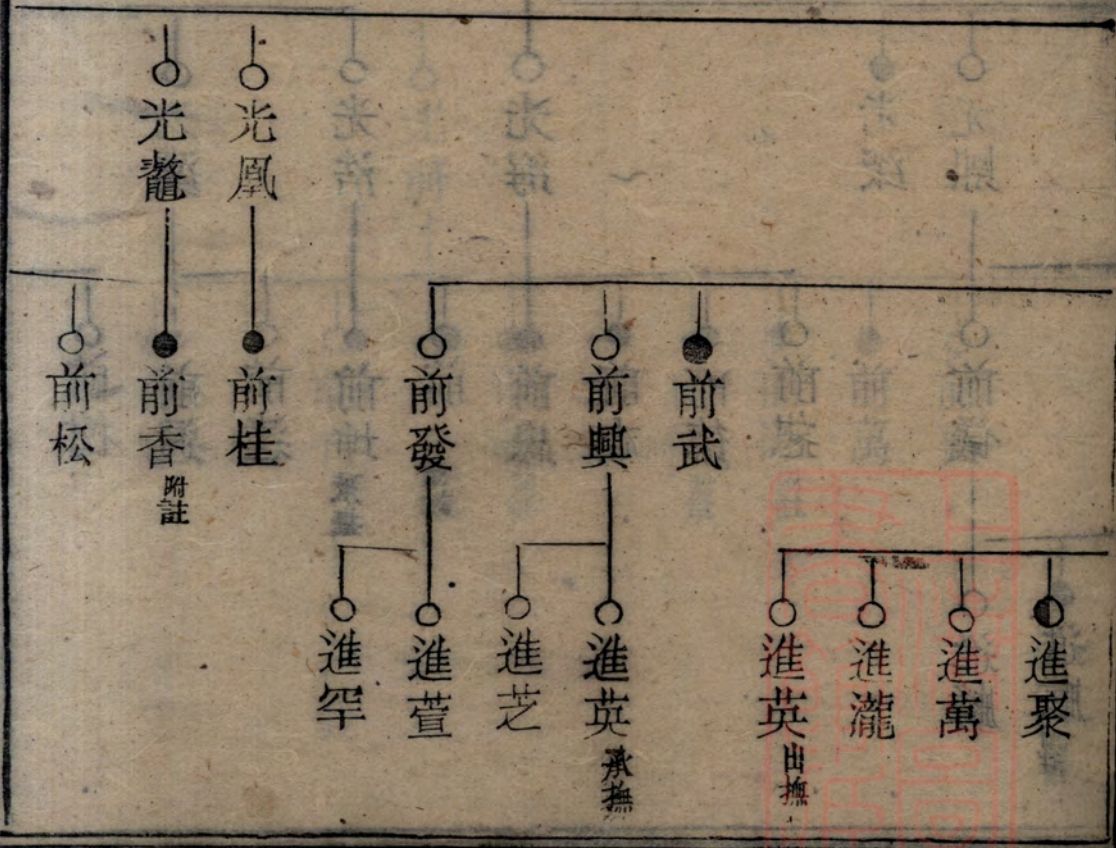 光凰
光鼇
前武
前興
前發
前桂
前香 附註
前松
進聚
進萬
進瀧
進英 出撫
進英 承撫
進芝
進萱
進罕